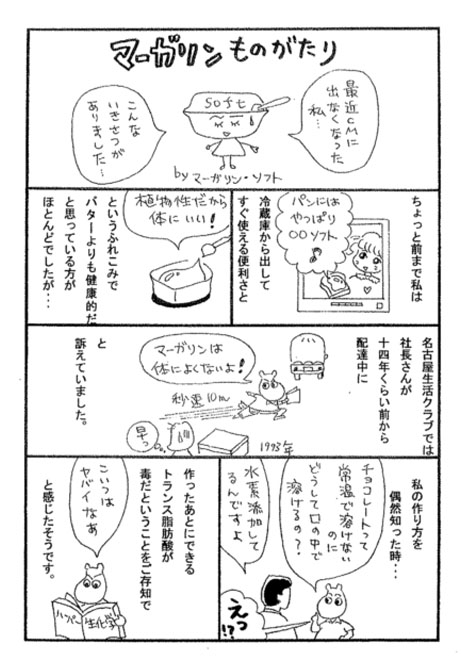 マーガリンものがたり
最近CMに
出なくなった
私…
soft
こんな
いきさつが
ありました…
by マーガリン・ソフト
ちょっと前まで私は
パンには
やっぱり
〇〇ソフト
冷蔵庫から出して
すぐ使える便利さと
植物性だから
体にいい!
というふれこみで
バターよりも健康的だ
と思っている方が
ほとんどでしたが・・・
名古屋生活クラブでは
社長さんが
十四年くらい前から
配達中に
マーガリンは
体によくないよ!
秒速10m
早っ
1993年
と
訴えていました。
私の作り方を
偶然知った時・・・
チョコレートって
常温で溶けない
のに
どうして口の中で
溶けるの?
水素添加して
るんですよ
えっ!?
作ったあとにできる
トランス脂肪酸が
毒だということをご存知で
こいつは
ヤバイなあ
ハーパー
生化学
と感じたそうです。